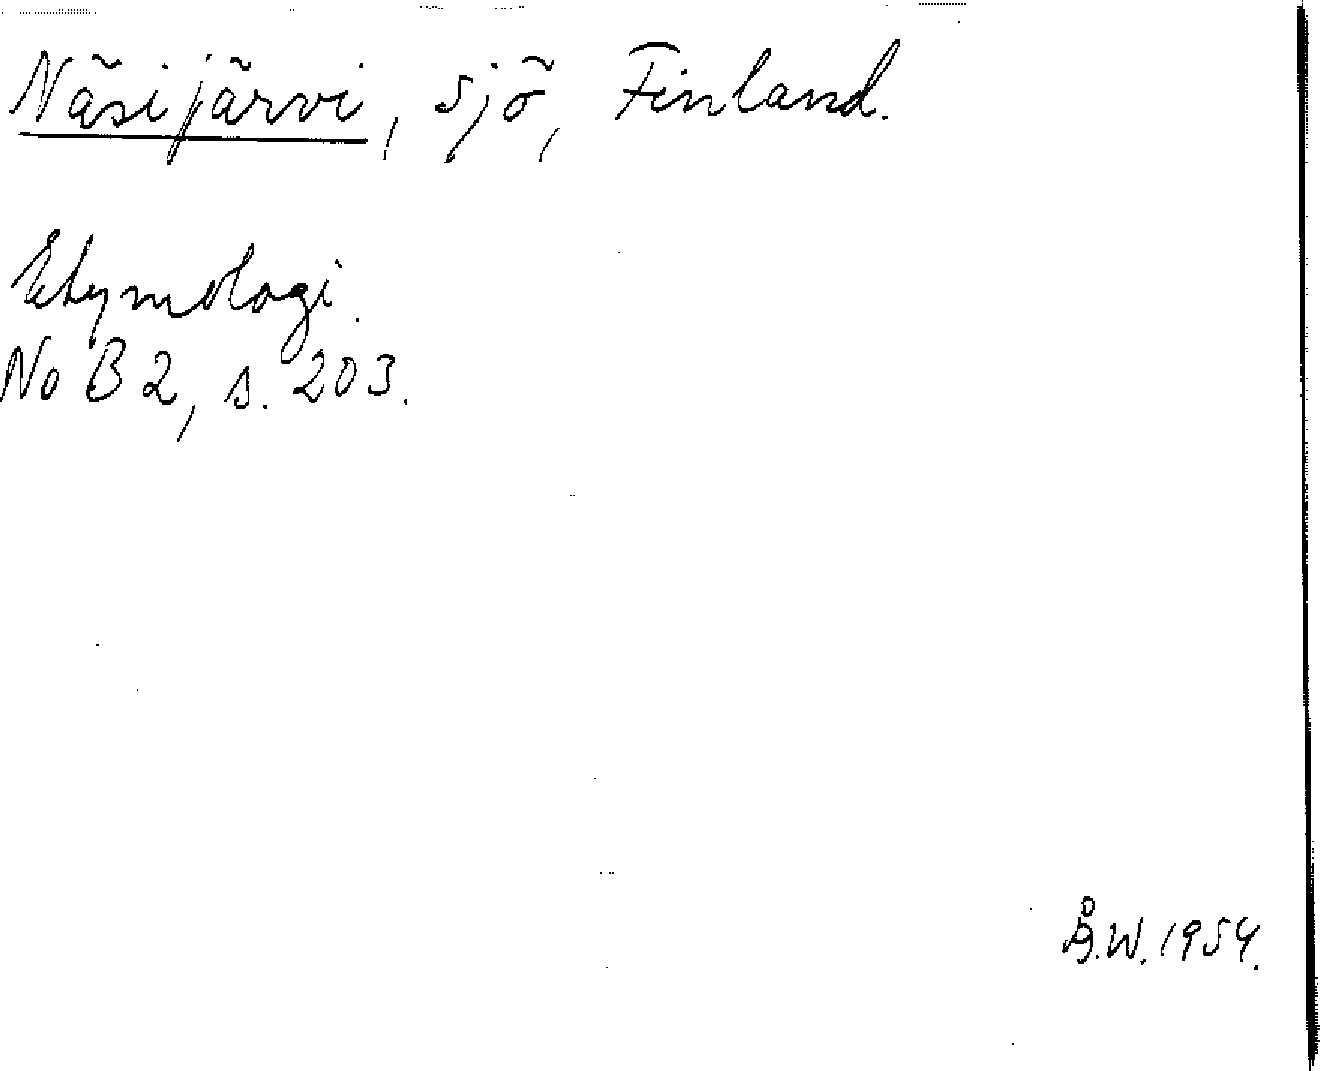 Näsijärvi, sjö, Finland.
Etymologi.
NoB 2, s. 203.
Å.W. 1954.